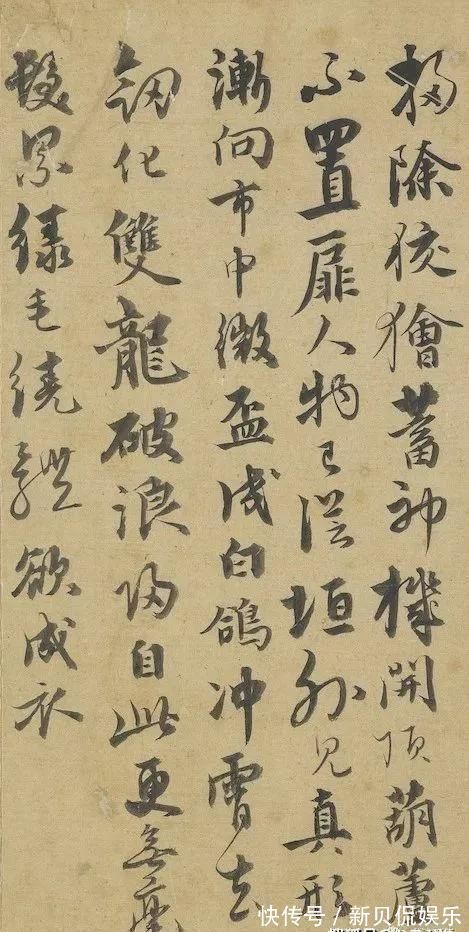 掃除狡獪蓄神機開頂葫蘆
不置扉人物已從垣外見真形
漸向市中微盃成白鴿冲霄去
釼化雙龍破浪歸自此更無塵
髮累緑毛繞體欲成衣
快传号/新贝侃娱乐